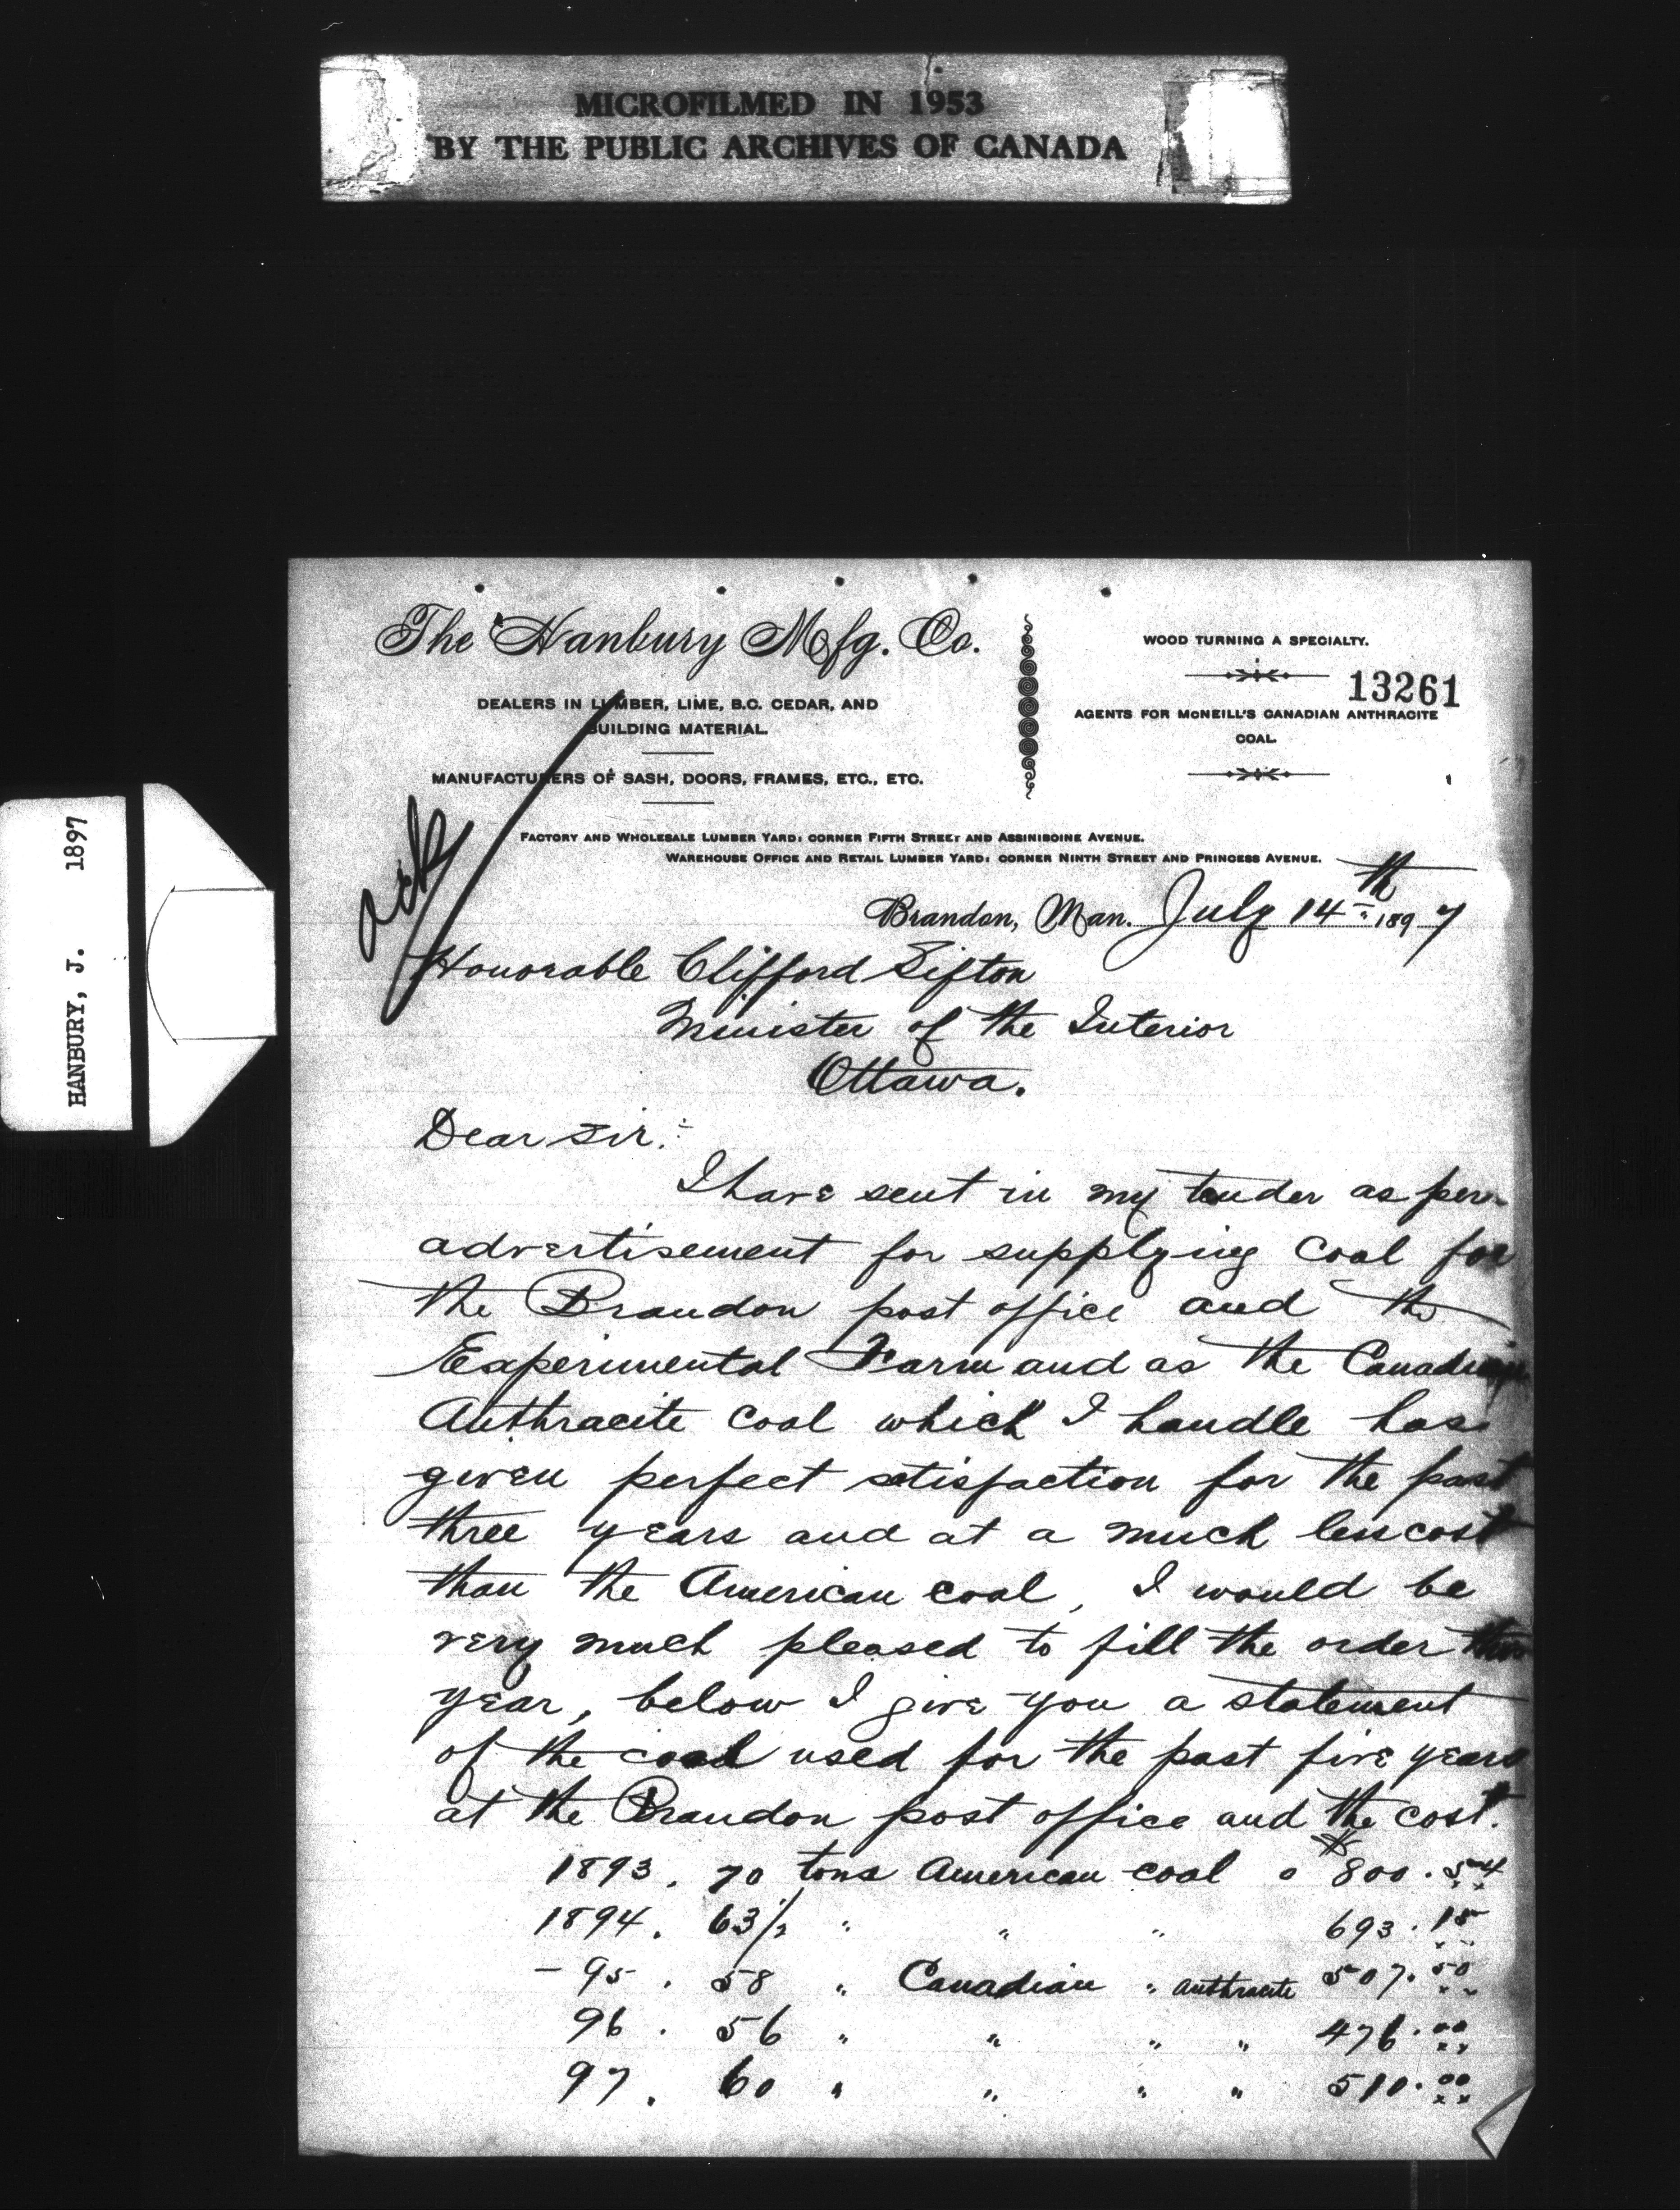 MICROFILMED IN 1953
BY THE PUBLIC ARCHIVES OF CANADA
HANBURY, J. 1897
The Hanbury Mfg. Co.
DEALERS IN LUMBER, LIME, B.C. CEDAR, AND
BUILDING MATERIAL.
MANUFACTURERS OF SASH, DOORS, FRAMES, ETC., ETC.
WOOD TURNING A SPECIALTY.
13261
AGENTS FOR MCNEILL'S CANADIAN ANTHRACITE
COAL.
FACTORY AND WHOLESALE LUMBER YARD: CORNER FIFTH STREET AND ASSINIBOINE AVENUE.
WAREHOUSE OFFICE AND RETAIL LUMBER YARD: CORNER NINTH STREET AND PRINCESS AVENUE.
ack
Brandon, Man. July 14th 1897
Honorable Clifford Sifton
Minister of the Interior
Ottawa.
Dear Sir:
I have sent in my tender as per
advertisement for supplying coal for
the Brandon post office and the
Experimental Farm and as the Canadian
Anthracite coal which I handle has
given perfect setisfaction for the past
three years and at a much less cost
than the American coal, I would be
very much pleased to fill the order this
year, below I give you a statement
of the coal used for the past five years
at the Brandon post office and the cost.
1893. 70 tons American coal o $800.54
1894. 63 1/2 " " " 693.15
- 95. 58 " Canadian " Anthracite 507.50
96. 56 " " " " 476.00
97. 60 " " " " 510.00